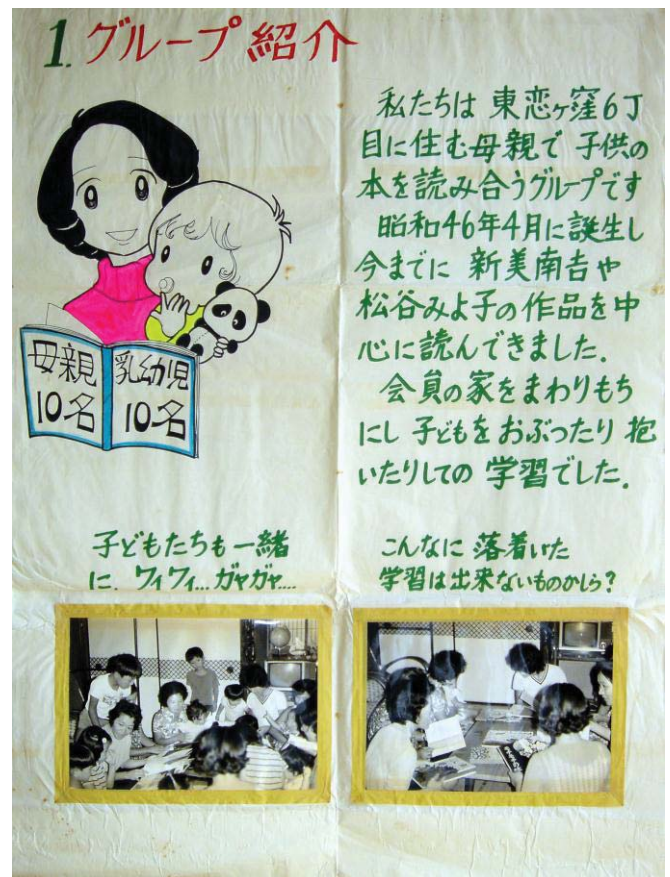 1. グループ紹介
私たちは 東恋ヶ窪6丁
目に住む母親で 子供の
本を読み合うグループです
昭和46年4月に誕生し
今までに 新美南吉や
松谷みよ子の作品を中
心に読んできました.
会員の家をまわりもち
にし 子どもを おぶったり 抱
いたりしての 学習でした.
母親
10名
乳幼児
10名
子どもたちも一緒
に. ワイワイ...ガヤガヤ....
こんなに 落着いた
学習は出来ないものかしら?